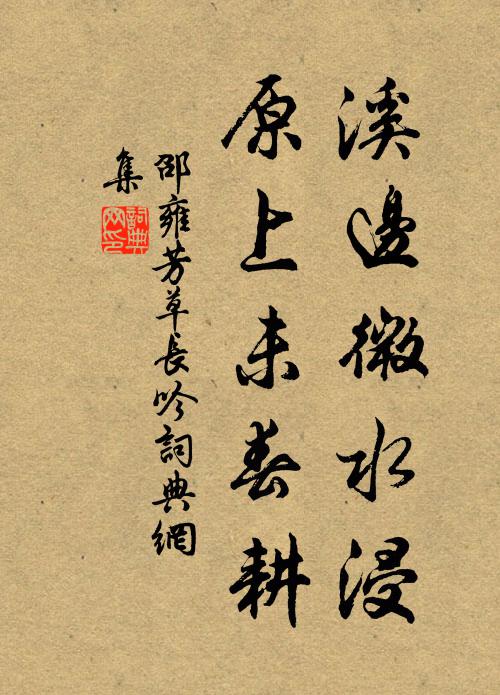 溪邊微水浸
原上未春耕
邵雍芳草長吟詞典網
集
詞典
网印